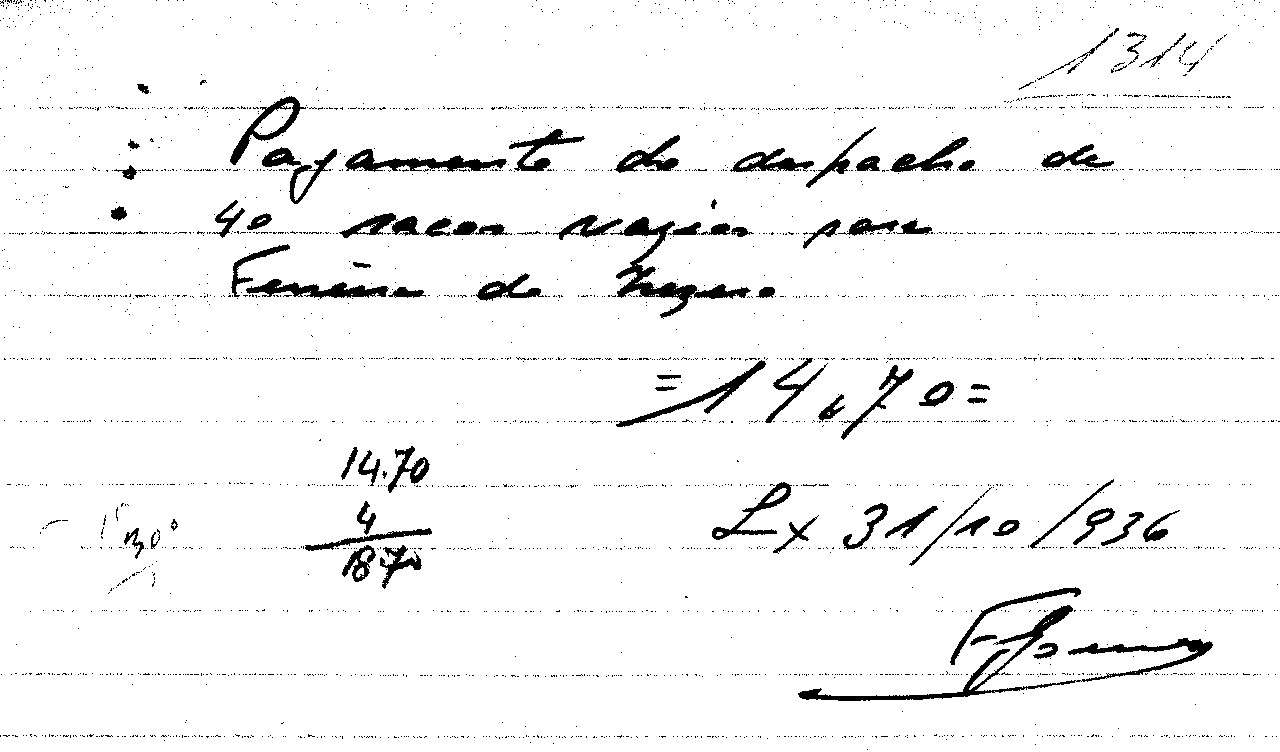 1314
Pagamento do despacho de
40 sacos vazios para
Ferreira do Zezere
=14,70=
14.70
4
18.70
Lx 31/10/936